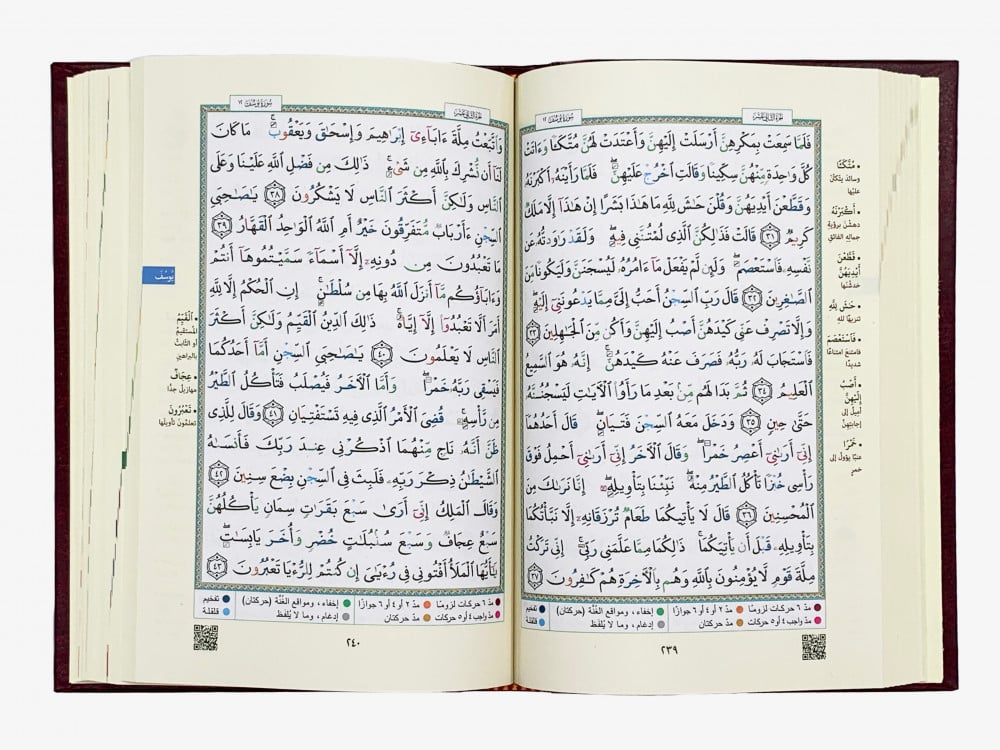 الجزء الثاني عشر
سورة يوسف ١٢
فَلَمَّا سَمِعَتْ بِمَكْرِهِنَّ أَرْسَلَتْ إِلَيْهِنَّ وَأَعْتَدَتْ لَهُنَّ مُتَّكَـًٔا وَءَاتَتْ
كُلَّ وَٰحِدَةٍ مِّنْهُنَّ سِكِّينًا وَقَالَتِ ٱخْرُجْ عَلَيْهِنَّ ۖ فَلَمَّا رَأَيْنَهُۥٓ أَكْبَرْنَهُۥ
وَقَطَّعْنَ أَيْدِيَهُنَّ وَقُلْنَ حَٰشَ لِلَّهِ مَا هَٰذَا بَشَرًا إِنْ هَٰذَآ إِلَّا مَلَكٌ
كَرِيمٌ ٣١ قَالَتْ فَذَٰلِكُنَّ ٱلَّذِى لُمْتُنَّنِى فِيهِ ۖ وَلَقَدْ رَٰوَدتُّهُۥ عَن
نَّفْسِهِۦ فَٱسْتَعْصَمَ ۖ وَلَئِن لَّمْ يَفْعَلْ مَآ ءَامُرُهُۥ لَيُسْجَنَنَّ وَلَيَكُونًا مِّنَ
ٱلصَّٰغِرِينَ ٣٢ قَالَ رَبِّ ٱلسِّجْنُ أَحَبُّ إِلَىَّ مِمَّا يَدْعُونَنِىٓ إِلَيْهِ ۖ
وَإِلَّا تَصْرِفْ عَنِّى كَيْدَهُنَّ أَصْبُ إِلَيْهِنَّ وَأَكُن مِّنَ ٱلْجَٰهِلِينَ ٣٣
فَٱسْتَجَابَ لَهُۥ رَبُّهُۥ فَصَرَفَ عَنْهُ كَيْدَهُنَّ ۚ إِنَّهُۥ هُوَ ٱلسَّمِيعُ
ٱلْعَلِيمُ ٣٤ ثُمَّ بَدَا لَهُم مِّنۢ بَعْدِ مَا رَأَوُا۟ ٱلْـَٔايَٰتِ لَيَسْجُنُنَّهُۥ
حَتَّىٰ حِينٍ ٣٥ وَدَخَلَ مَعَهُ ٱلسِّجْنَ فَتَيَانِ ۖ قَالَ أَحَدُهُمَآ
إِنِّىٓ أَرَىٰنِىٓ أَعْصِرُ خَمْرًا ۖ وَقَالَ ٱلْـَٔاخَرُ إِنِّىٓ أَرَىٰنِىٓ أَحْمِلُ فَوْقَ
رَأْسِى خُبْزًا تَأْكُلُ ٱلطَّيْرُ مِنْهُ ۖ نَبِّئْنَا بِتَأْوِيلِهِۦٓ ۖ إِنَّا نَرَىٰكَ مِنَ
ٱلْمُحْسِنِينَ ٣٦ قَالَ لَا يَأْتِيكُمَا طَعَامٌ تُرْزَقَانِهِۦٓ إِلَّا نَبَّأْتُكُمَا
بِتَأْوِيلِهِۦ قَبْلَ أَن يَأْتِيَكُمَا ۚ ذَٰلِكُمَا مِمَّا عَلَّمَنِى رَبِّىٓ ۚ إِنِّى تَرَكْتُ
مِلَّةَ قَوْمٍ لَّا يُؤْمِنُونَ بِٱللَّهِ وَهُم بِٱلْـَٔاخِرَةِ هُمْ كَٰفِرُونَ ٣٧
• مُتَّكَـًٔا
وسائدَ يتّكئنَ
عليها
• أَكْبَرْنَهُ
دهشنَ برؤيةِ
جمالهِ الفائقِ
• قَطَّعْنَ
أَيْدِيَهُنَّ
خدشنها
• حَٰشَ لِلَّهِ
تنزيهًا للهِ
• فَٱسْتَعْصَمَ
فامتنعَ امتناعًا
شديدًا
• أَصْبُ
إِلَيْهِنَّ
أمِلْ إلى
إجابتهنَّ
• خَمْرًا
عنبًا يؤولُ إلى
خمرٍ
مدّ ٦ حركات لزومًا • مدّ ٢ أو ٤ أو ٦ جوازًا • إخفاء، ومواقع الغُنَّة (حركتان) • تفخيم
مدّ واجب ٤ أو ٥ حركات • مدّ حركتان • إدغام، وما لا يُلفظ • قلقلة
٢٣٩
الجزء الثاني عشر
سورة يوسف ١٢
وَٱتَّبَعْتُ مِلَّةَ ءَابَآءِىٓ إِبْرَٰهِيمَ وَإِسْحَٰقَ وَيَعْقُوبَ ۚ مَا كَانَ
لَنَآ أَن نُّشْرِكَ بِٱللَّهِ مِن شَىْءٍ ۚ ذَٰلِكَ مِن فَضْلِ ٱللَّهِ عَلَيْنَا وَعَلَى
ٱلنَّاسِ وَلَٰكِنَّ أَكْثَرَ ٱلنَّاسِ لَا يَشْكُرُونَ ٣٨ يَٰصَٰحِبَىِ
ٱلسِّجْنِ ءَأَرْبَابٌ مُّتَفَرِّقُونَ خَيْرٌ أَمِ ٱللَّهُ ٱلْوَٰحِدُ ٱلْقَهَّارُ ٣٩
مَا تَعْبُدُونَ مِن دُونِهِۦٓ إِلَّآ أَسْمَآءً سَمَّيْتُمُوهَآ أَنتُمْ
وَءَابَآؤُكُم مَّآ أَنزَلَ ٱللَّهُ بِهَا مِن سُلْطَٰنٍ ۚ إِنِ ٱلْحُكْمُ إِلَّا لِلَّهِ
أَمَرَ أَلَّا تَعْبُدُوٓا۟ إِلَّآ إِيَّاهُ ۚ ذَٰلِكَ ٱلدِّينُ ٱلْقَيِّمُ وَلَٰكِنَّ أَكْثَرَ
ٱلنَّاسِ لَا يَعْلَمُونَ ٤٠ يَٰصَٰحِبَىِ ٱلسِّجْنِ أَمَّآ أَحَدُكُمَا
فَيَسْقِى رَبَّهُۥ خَمْرًا ۖ وَأَمَّا ٱلْـَٔاخَرُ فَيُصْلَبُ فَتَأْكُلُ ٱلطَّيْرُ
مِن رَّأْسِهِۦ ۚ قُضِىَ ٱلْأَمْرُ ٱلَّذِى فِيهِ تَسْتَفْتِيَانِ ٤١ وَقَالَ لِلَّذِى
ظَنَّ أَنَّهُۥ نَاجٍ مِّنْهُمَا ٱذْكُرْنِى عِندَ رَبِّكَ فَأَنسَىٰهُ
ٱلشَّيْطَٰنُ ذِكْرَ رَبِّهِۦ فَلَبِثَ فِى ٱلسِّجْنِ بِضْعَ سِنِينَ ٤٢
وَقَالَ ٱلْمَلِكُ إِنِّىٓ أَرَىٰ سَبْعَ بَقَرَٰتٍ سِمَانٍ يَأْكُلُهُنَّ
سَبْعٌ عِجَافٌ وَسَبْعَ سُنۢبُلَٰتٍ خُضْرٍ وَأُخَرَ يَابِسَٰتٍ ۖ
يَٰٓأَيُّهَا ٱلْمَلَأُ أَفْتُونِى فِى رُءْيَٰىَ إِن كُنتُمْ لِلرُّءْيَا تَعْبُرُونَ ٤٣
يُوسُف
• ٱلْقَيِّمُ
المستقيمُ
أو الثّابتُ
بالبراهينِ
• عِجَافٌ
مهازيلُ جدًّا
• تَعْبُرُونَ
تعلمونَ تأويلَها
مدّ ٦ حركات لزومًا • مدّ ٢ أو ٤ أو ٦ جوازًا • إخفاء، ومواقع الغُنَّة (حركتان) • تفخيم
مدّ واجب ٤ أو ٥ حركات • مدّ حركتان • إدغام، وما لا يُلفظ • قلقلة
٢٤٠